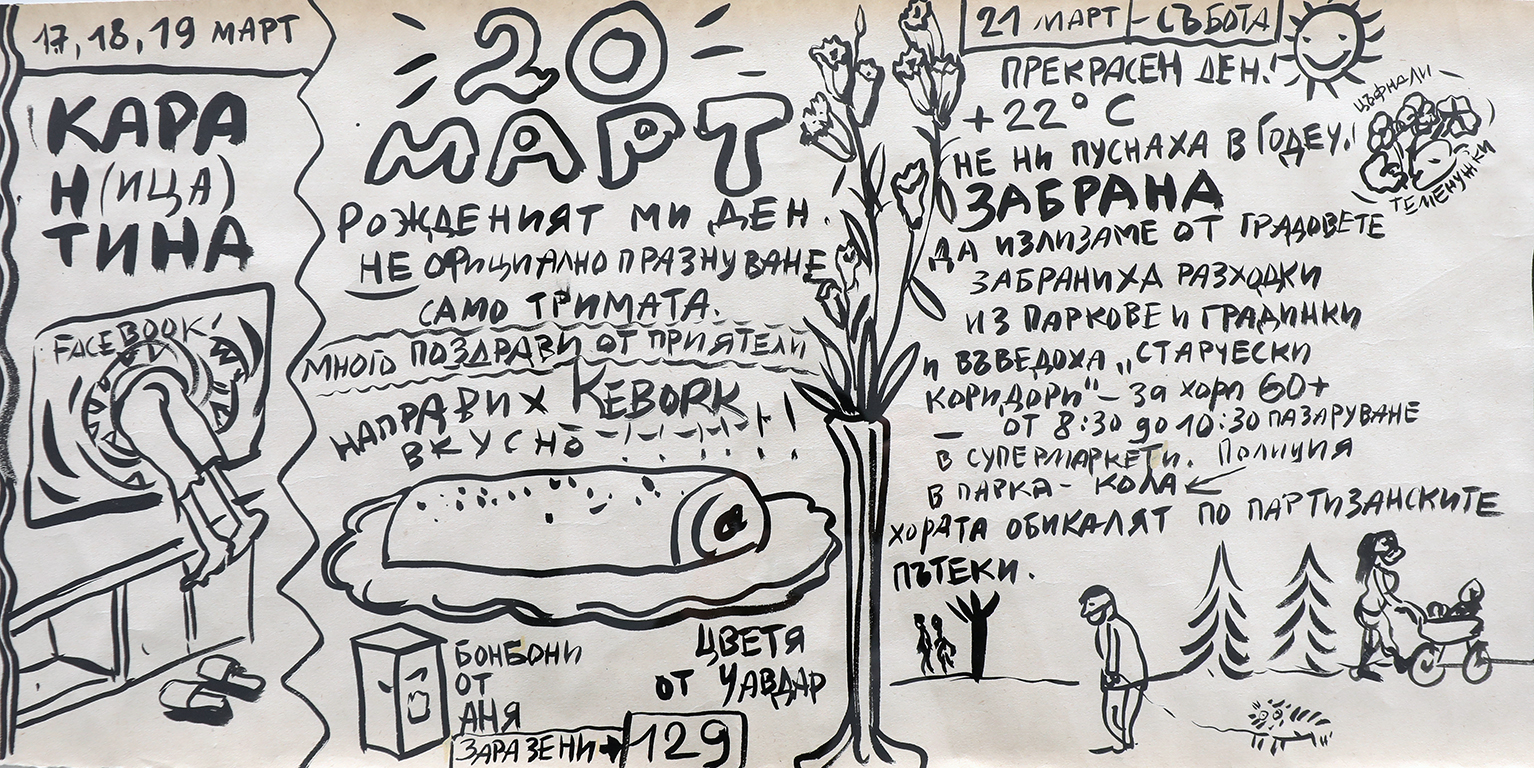 17, 18, 19 МАРТ
КАРА
Н(ИЦА)
ТИНА
FACEBOOK!
20
МАРТ
РОЖДЕНИЯТ МИ ДЕН.
НЕ ОФИЦИАЛНО ПРАЗНУВАНЕ
САМО ТРИМАТА.
МНОГО ПОЗДРАВИ ОТ ПРИЯТЕЛИ
НАПРАВИХ KEBORK
ВКУСНО
БОНБОНИ
ОТ
АНЯ
ЦВЕТЯ
ОТ ЧАВДАР
ЗАРАЗЕНИ → 129
21 МАРТ - СЪБОТА
ПРЕКРАСЕН ДЕН!
+22° C
НЕ НИ ПУСНАХА В ГОДЕЧ!
ЦЪФНАЛИ
ТЕМЕНУЖКИ
ЗАБРАНА
ДА ИЗЛИЗАМЕ ОТ ГРАДОВЕТЕ
ЗАБРАНИХА РАЗХОДКИ
ИЗ ПАРКОВЕ И ГРАДИНКИ
И ВЪВЕДОХА „СТАРЧЕСКИ
КОРИДОРИ" – за хора 60+
– ОТ 8:30 до 10:30 ПАЗАРУВАНЕ
В СУПЕРМАРКЕТИ. Полиция
В ПАРКА - КОЛА ↙
ХОРАТА ОБИКАЛЯТ ПО ПАРТИЗАНСКИТЕ
ПЪТЕКИ.